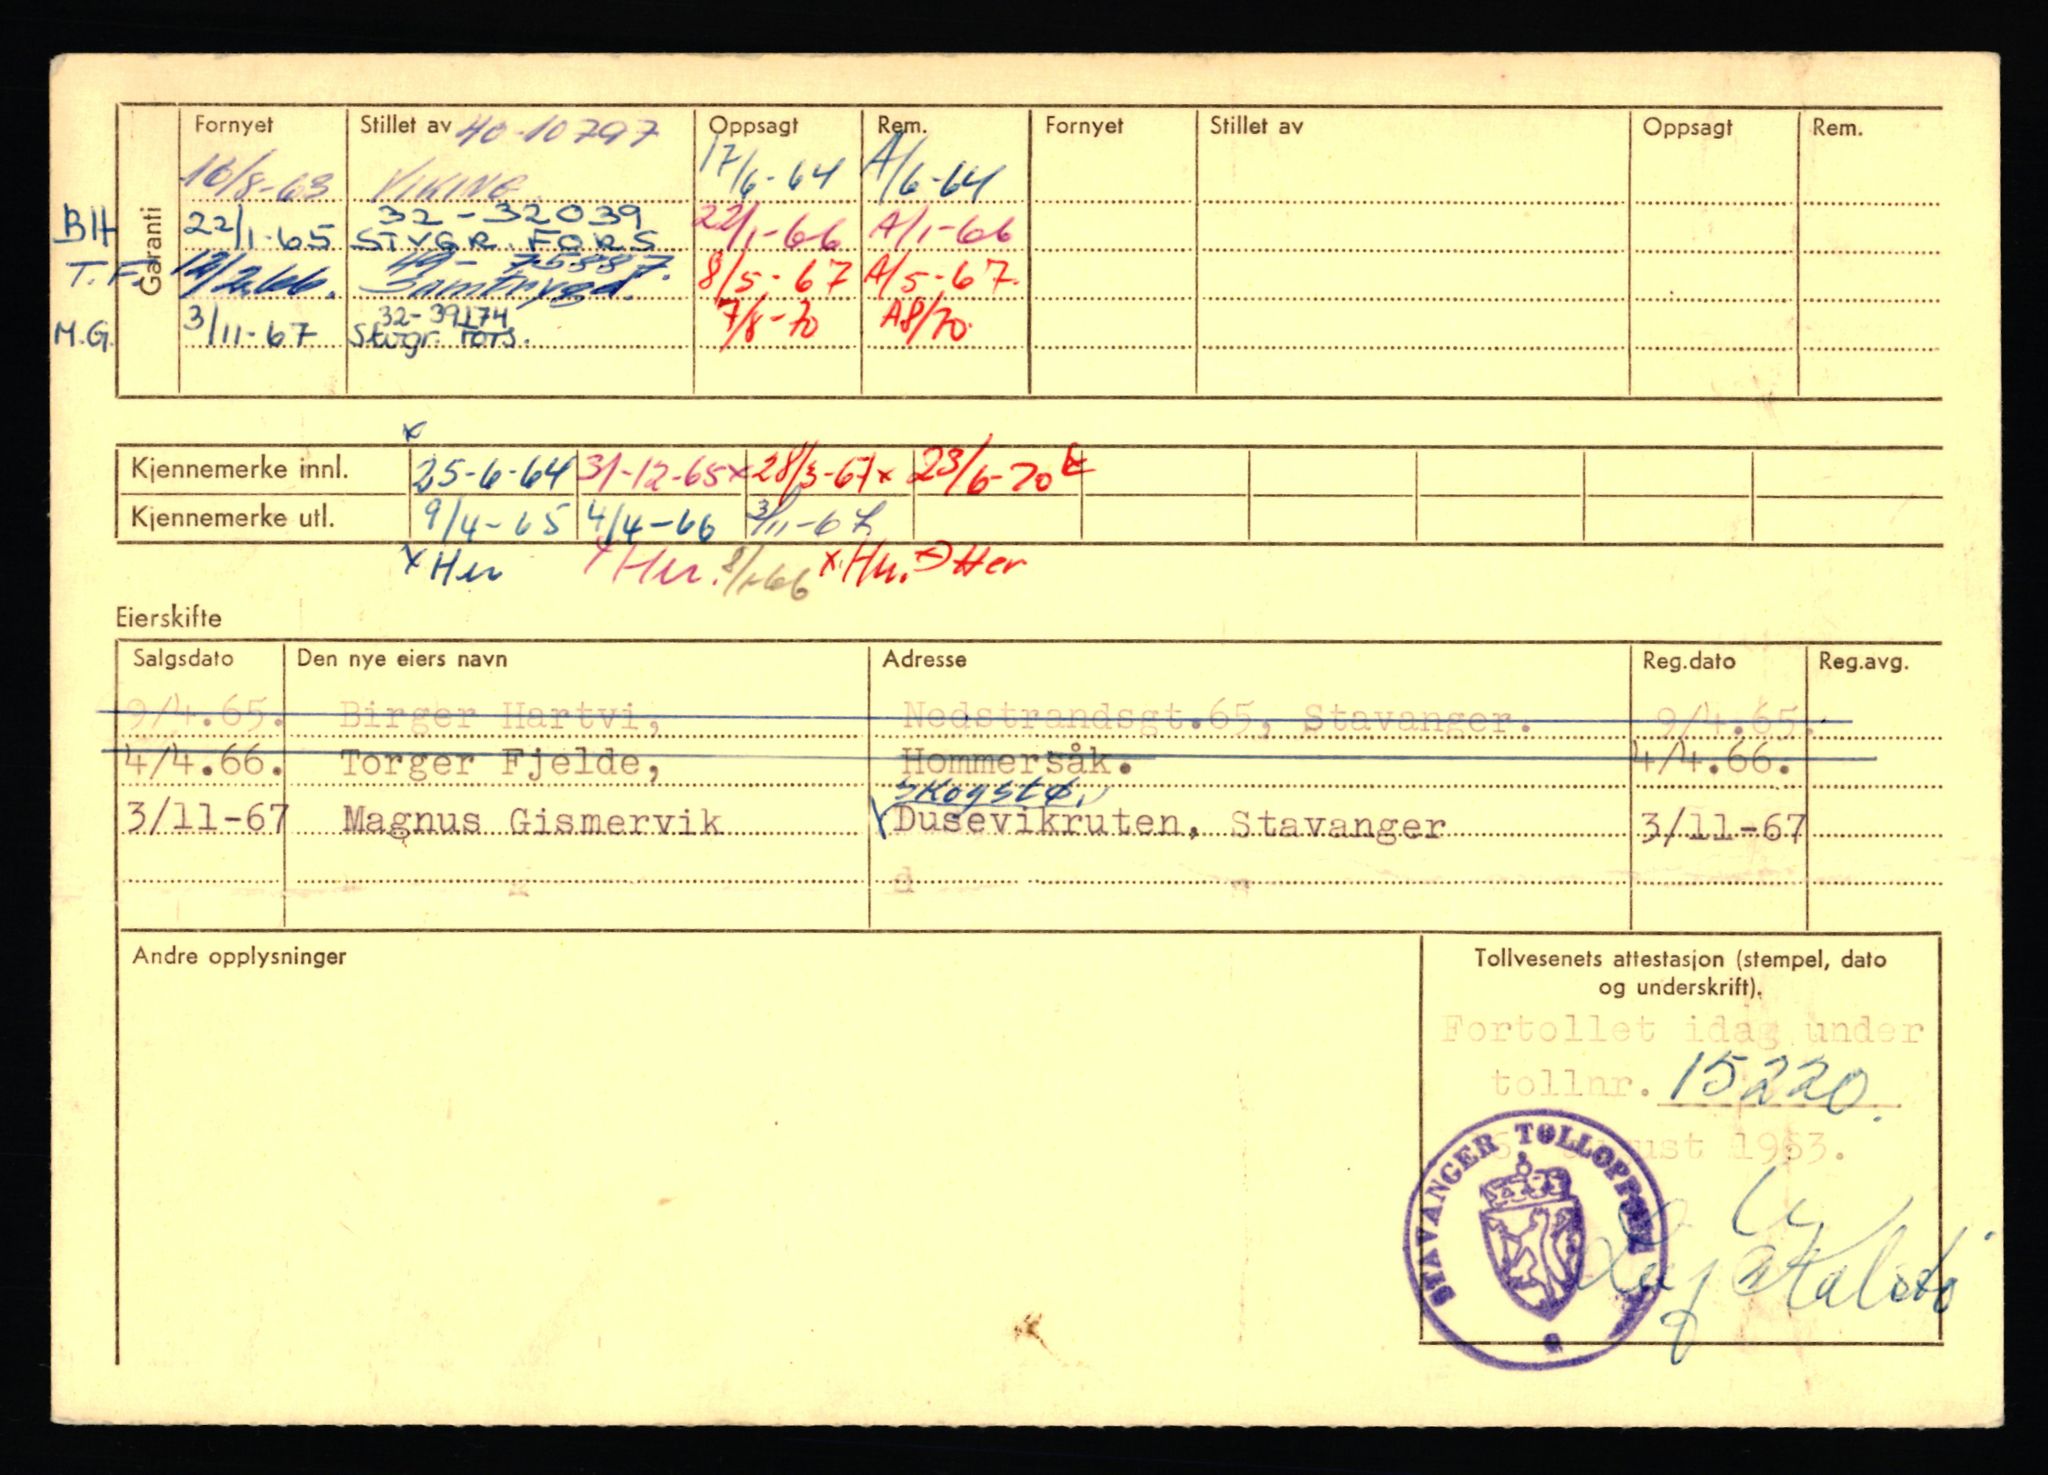 Garanti
Fornyet Stillet av 40-10797 Oppsagt Rem. Fornyet Stillet av Oppsagt Rem.
16/8-63 VIKING 17/6-64 A/6-64
BH 22/1-65 32-32039 STVGR. FORS 22/1-66 A/1-66
T.F. 49-75887 Samtrygd. 8/5-67 A/5-67.
M.G. 3/11-67 32-39174 Stvgr. Fors. 7/8-70 A8/70.
x
Kjennemerke innl. 25-6-64 31-12-65x 28/3-67x 23/6-70
Kjennemerke utl. 9/4-65 4/4-66 3/11-67
x Her x Her. 8/1-66 x Her. Her
Eierskifte
Salgsdato Den nye eiers navn Adresse Reg.dato Reg.avg.
9/4.65. Birger Hartvi, Nedstrandsgt.65, Stavanger. 9/4.65.
4/4.66. Torger Fjelde, Hommersåk. 4/4.66.
Skogstø,
3/11-67 Magnus Gismervik Dusevikruten, Stavanger 3/11-67
Andre opplysninger
Tollvesenets attestasjon (stempel, dato
og underskrift).
Fortollet idag under
tollnr. 15220.
august 1963.
STAVANGER TOLLOPPSYN